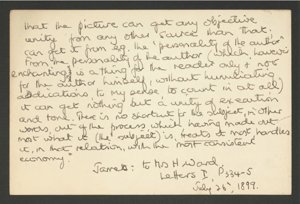 that the picture can get any objective
unity from any other source than that,
can get it from e.g. the "personality of the author".
From the personality of the author (which, however
enchanting) is a thing for the reader only, & not
for the author himself, without humiliating
abdications, to my sense, to count in at all)
it can get nothing but a unity of execution
and tone. There is no shortcut for the subject, in other
words, out of the process which, having made out
most what it (the subject) is, treats it most, handles
it, in that relation, with the most consistent
economy."
James: to Mrs H Ward
Letters I, P 334-5
July 26th, 1899.